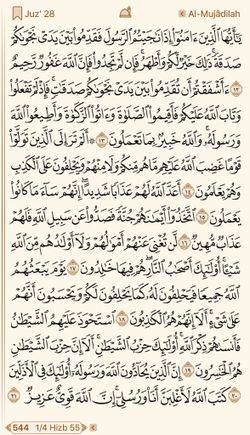 Juz' 28 Al-Mujādilah
يَـٰٓأَيُّهَا ٱلَّذِينَ ءَامَنُوٓا۟ إِذَا نَـٰجَيْتُمُ ٱلرَّسُولَ فَقَدِّمُوا۟ بَيْنَ يَدَىْ نَجْوَىٰكُمْ
صَدَقَةً ۚ ذَٰلِكَ خَيْرٌ لَّكُمْ وَأَطْهَرُ ۚ فَإِن لَّمْ تَجِدُوا۟ فَإِنَّ ٱللَّهَ غَفُورٌ رَّحِيمٌ
١٢ ءَأَشْفَقْتُمْ أَن تُقَدِّمُوا۟ بَيْنَ يَدَىْ نَجْوَىٰكُمْ صَدَقَـٰتٍ ۚ فَإِذْ لَمْ تَفْعَلُوا۟
وَتَابَ ٱللَّهُ عَلَيْكُمْ فَأَقِيمُوا۟ ٱلصَّلَوٰةَ وَءَاتُوا۟ ٱلزَّكَوٰةَ وَأَطِيعُوا۟ ٱللَّهَ
وَرَسُولَهُۥ ۚ وَٱللَّهُ خَبِيرٌۢ بِمَا تَعْمَلُونَ ١٣ ۞ أَلَمْ تَرَ إِلَى ٱلَّذِينَ تَوَلَّوْا۟
قَوْمًا غَضِبَ ٱللَّهُ عَلَيْهِم مَّا هُم مِّنكُمْ وَلَا مِنْهُمْ وَيَحْلِفُونَ عَلَى ٱلْكَذِبِ
وَهُمْ يَعْلَمُونَ ١٤ أَعَدَّ ٱللَّهُ لَهُمْ عَذَابًا شَدِيدًا ۖ إِنَّهُمْ سَآءَ مَا كَانُوا۟
يَعْمَلُونَ ١٥ ٱتَّخَذُوٓا۟ أَيْمَـٰنَهُمْ جُنَّةً فَصَدُّوا۟ عَن سَبِيلِ ٱللَّهِ فَلَهُمْ
عَذَابٌ مُّهِينٌ ١٦ لَّن تُغْنِىَ عَنْهُمْ أَمْوَٰلُهُمْ وَلَآ أَوْلَـٰدُهُم مِّنَ ٱللَّهِ
شَيْـًٔا ۚ أُو۟لَـٰٓئِكَ أَصْحَـٰبُ ٱلنَّارِ ۖ هُمْ فِيهَا خَـٰلِدُونَ ١٧ يَوْمَ يَبْعَثُهُمُ
ٱللَّهُ جَمِيعًا فَيَحْلِفُونَ لَهُۥ كَمَا يَحْلِفُونَ لَكُمْ ۖ وَيَحْسَبُونَ أَنَّهُمْ
عَلَىٰ شَىْءٍ ۚ أَلَآ إِنَّهُمْ هُمُ ٱلْكَـٰذِبُونَ ١٨ ٱسْتَحْوَذَ عَلَيْهِمُ ٱلشَّيْطَـٰنُ
فَأَنسَىٰهُمْ ذِكْرَ ٱللَّهِ ۚ أُو۟لَـٰٓئِكَ حِزْبُ ٱلشَّيْطَـٰنِ ۚ أَلَآ إِنَّ حِزْبَ ٱلشَّيْطَـٰنِ
هُمُ ٱلْخَـٰسِرُونَ ١٩ إِنَّ ٱلَّذِينَ يُحَآدُّونَ ٱللَّهَ وَرَسُولَهُۥٓ أُو۟لَـٰٓئِكَ فِى ٱلْأَذَلِّينَ
٢٠ كَتَبَ ٱللَّهُ لَأَغْلِبَنَّ أَنَا۠ وَرُسُلِىٓ ۚ إِنَّ ٱللَّهَ قَوِىٌّ عَزِيزٌ ٢١
544 1/4 Hizb 55